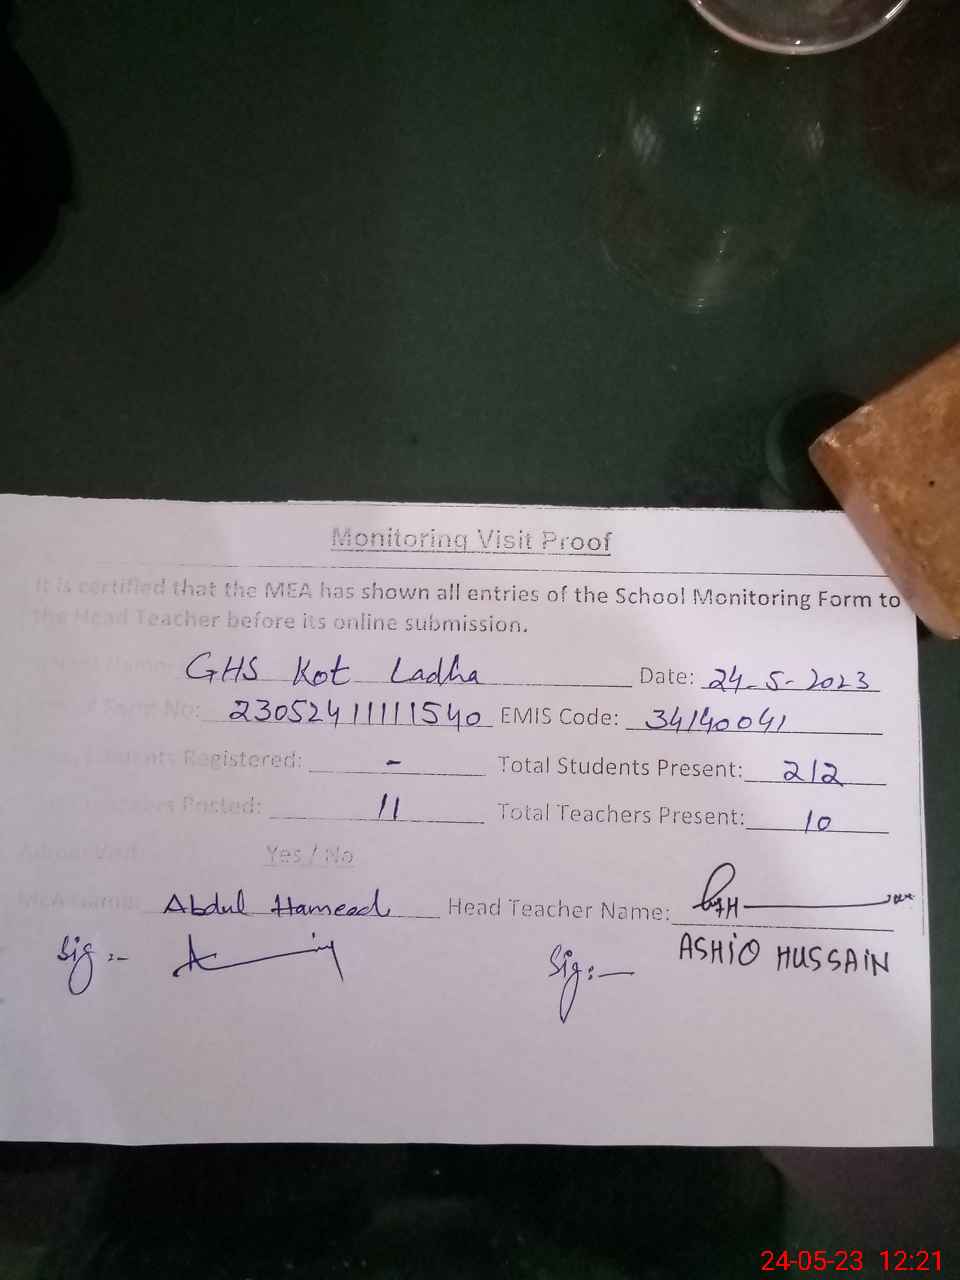 Monitoring Visit Proof
It is certified that the MEA has shown all entries of the School Monitoring Form to
the Head Teacher before its online submission.
Name: GHS Kot Ladha Date: 24-5-2023
No: 23052411111540 EMIS Code: 34140041
Students Registered: - Total Students Present: 212
Teachers Posted: 11 Total Teachers Present: 10
Visit: Yes / No
MEA Name: Abdul Hameed Head Teacher Name:
Sig :- Sig :- ASHIQ HUSSAIN
24-05-23 12:21